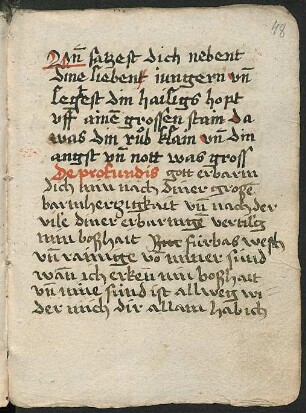 48
Vn̄ saczest dich nebent
dine liebent iungern vn̄
legest din hailigs hopt
vff ainē grossen stain da
was din růb klain vn̄ din
angst vn̄ nott was gross
De profundis gott erbarm
dich min nach diner grosse
barmherczigkait vn̄ nach der
vile diner erbarmigen vertilig
min boßhait fürbas wesch
vn̄ rainige vō miner sünd
wan̄ ich erken min boßhait
vn̄ mine sünd ist allweg wi
der mich dir allain hab ich